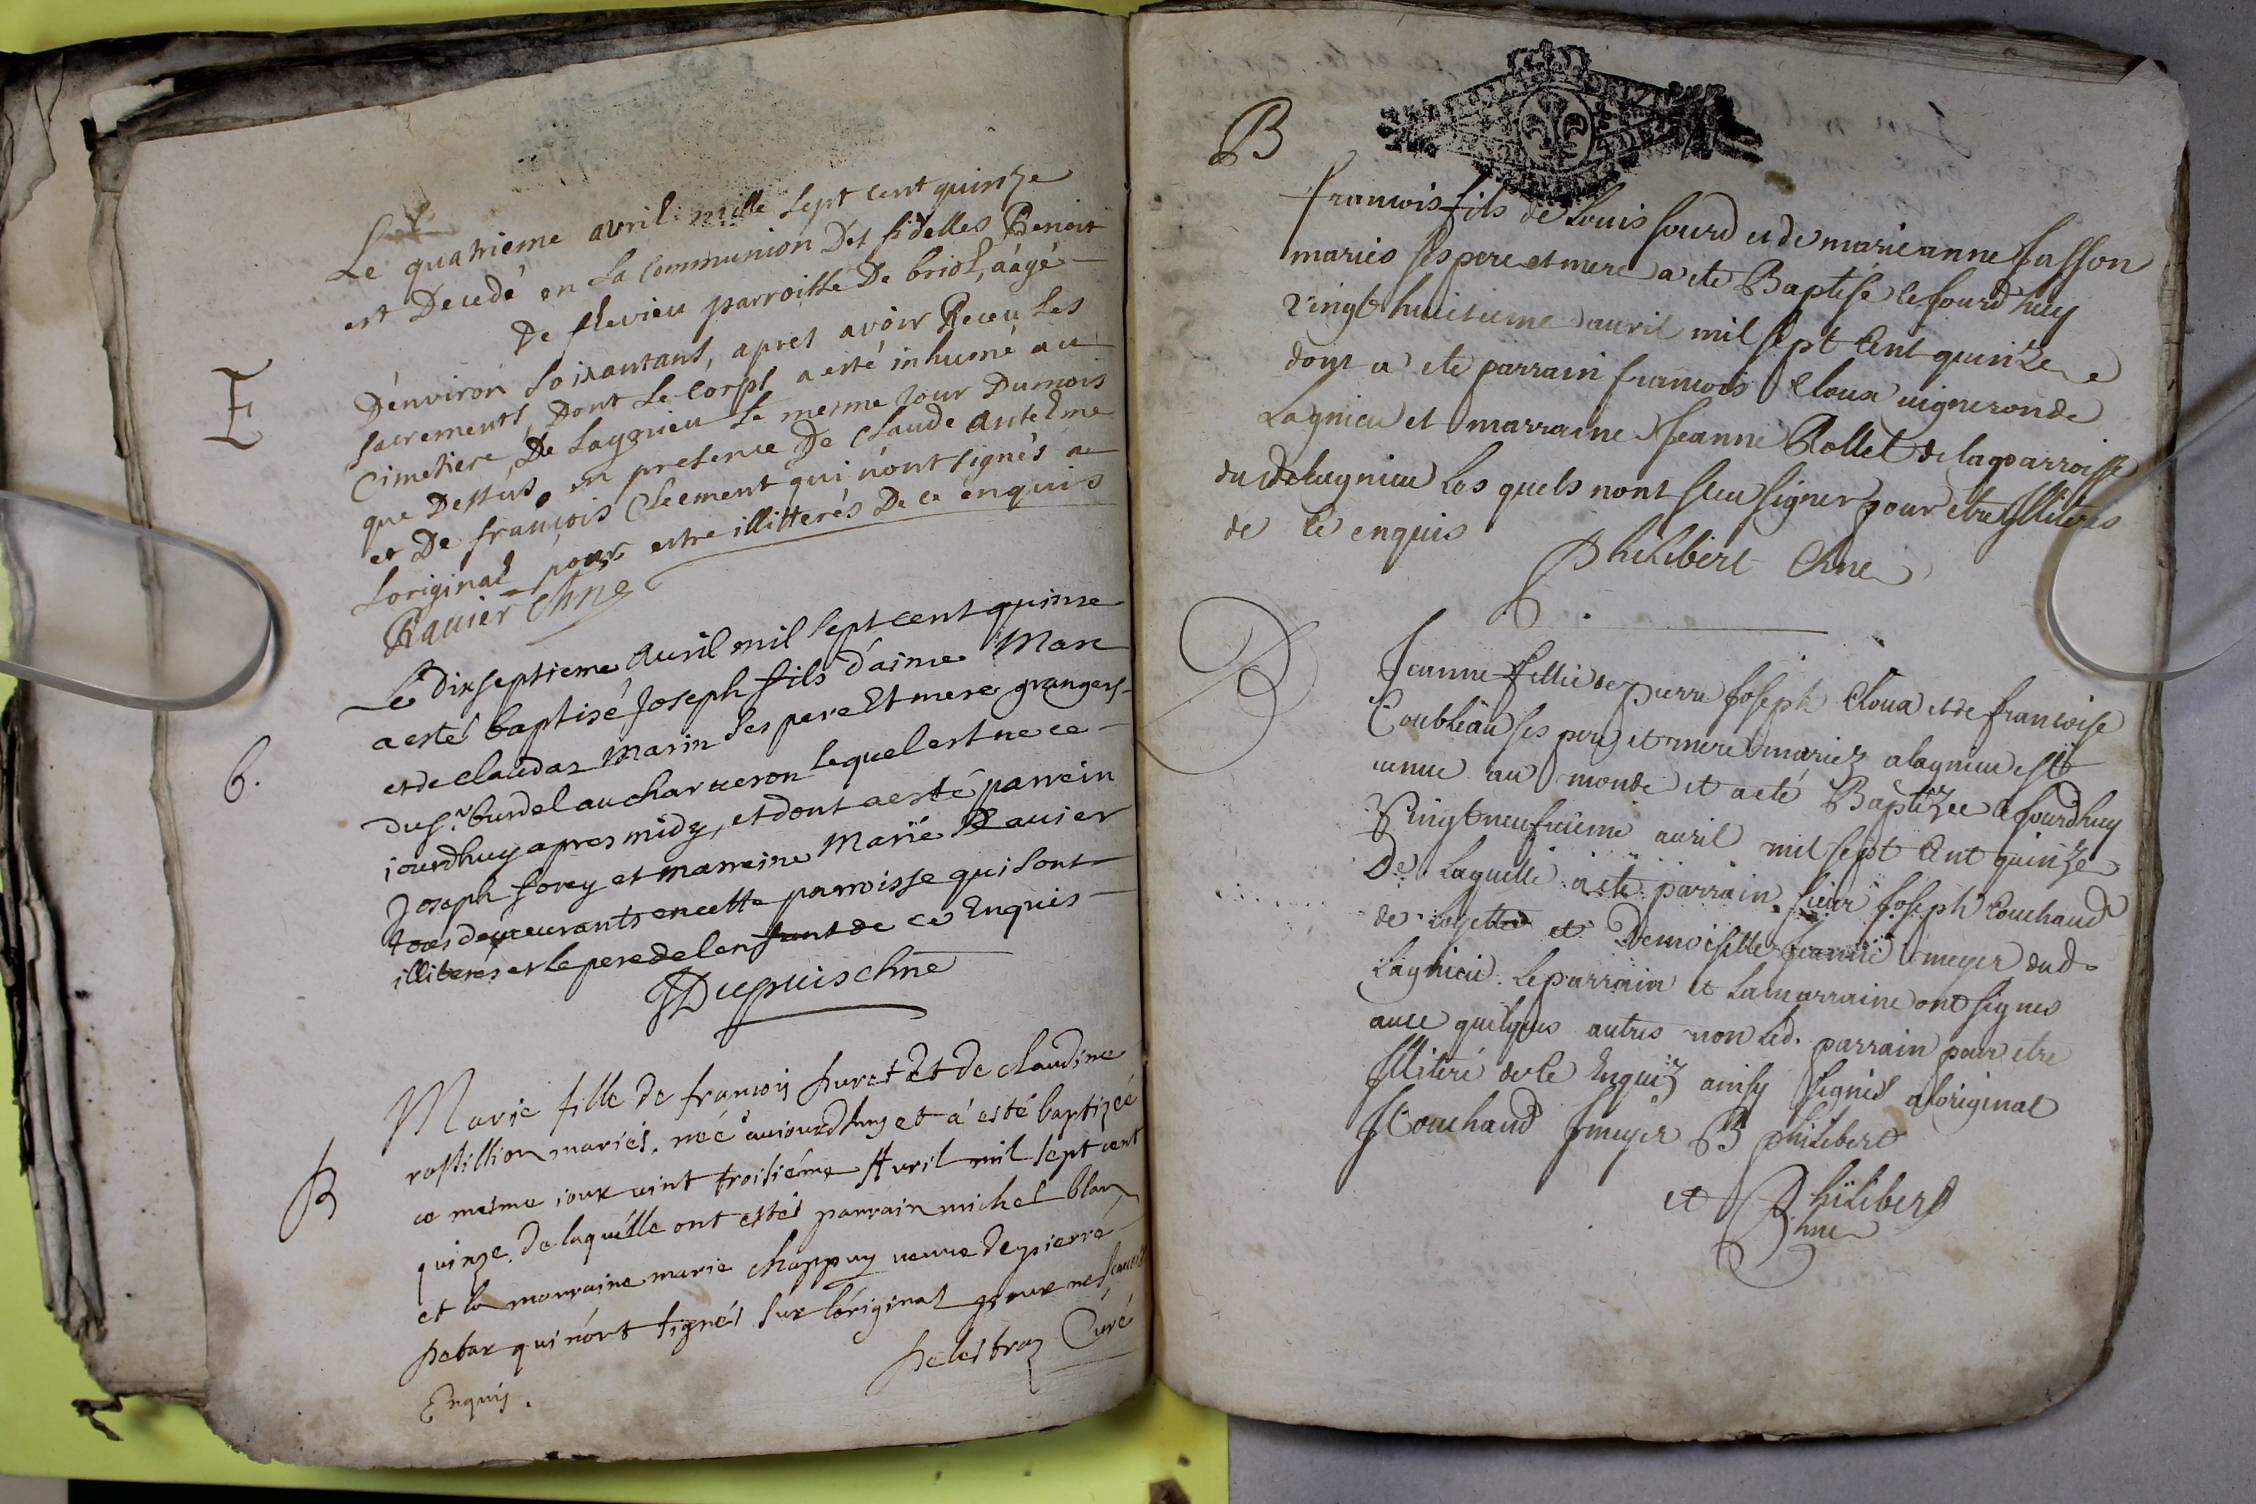 Le quatrieme avril mille sept cent quinze
est Decedé en La Communion Des fidelles Benoit
De flevieu parroisse De briol, aâgé
E
D'environ soixantans, apres avoir Receu les
sacrements, Dont Le Corps a esté inhumé au
Cimetiere De Lagnieu Le mesme Jour Dumois
que Dessus, en presence De Claude Antelme
et De françois Cleement qui n'ont signés a
Loriginal pour estre illitterés De ce enquis
Ravier chne
Le Dixseptieme Auril mil sept cent quinze
a esté baptisé Joseph fils d'aime Marc
et de claudaz Marin ses pere Et mere grangers
6.
du sr. burdel au charueron lequel est ne ce
iourdhuy apres midy, et dont a esté parrein
Joseph sorey et marreine Marïe Rauier
tous demeurants en cette parroisse qui sont
illiterés et le pere de lenfant de ce Enquis
JDupuis chne
Marie fille de francois huret Et de claudine
rostillion mariés. neé aujourdhuy et a esté baptizeé
B
ce mesme iour vint troisiéme Avril mil sept cent
quinze. De laquelle ont estés parrain michel blanz
et la marraine marie chappuy veuve de pierre
qui n'ont signés sur l'original pour ne scavoir
Enquis.
Delestraz Curé
B
francois fils de Louis sourd et de marie anne Jasson
maries ses pere et mere a ete Baptise Ce Jourd huy
vingt huitieme dauril mil sept Cent quinze
dont a ete parrain francois Cloux uigneron de
Lagnieu et marraine Jeanne Rollet de la parroisse
dud Lagnieu Les quels nont sceu signer pour etre Illiteres
de Ce enquis
Philibert Chne
B
Jeanne fillie de pierre Joseph Cloux et de francoise
Coubleau ses pere et mere mariez a lagnieu est
uenue au monde et a eté Baptizee Ce Jourdhuy
Vingt neufuieme auril mil sept Cent quinze
De Laquelle a ete parrain sieur Joseph Couchaud
de Loyette et Demoiselle Jeanne meyer dud
Lagnieu. Le parrain et La marraine ont signes
auec quelques autres non Led. parrain pour etre
Illiteré de Ce Enquis ainsy Signes a loriginal
J Couchaud J meyer B philibert
et Philibert
Chne